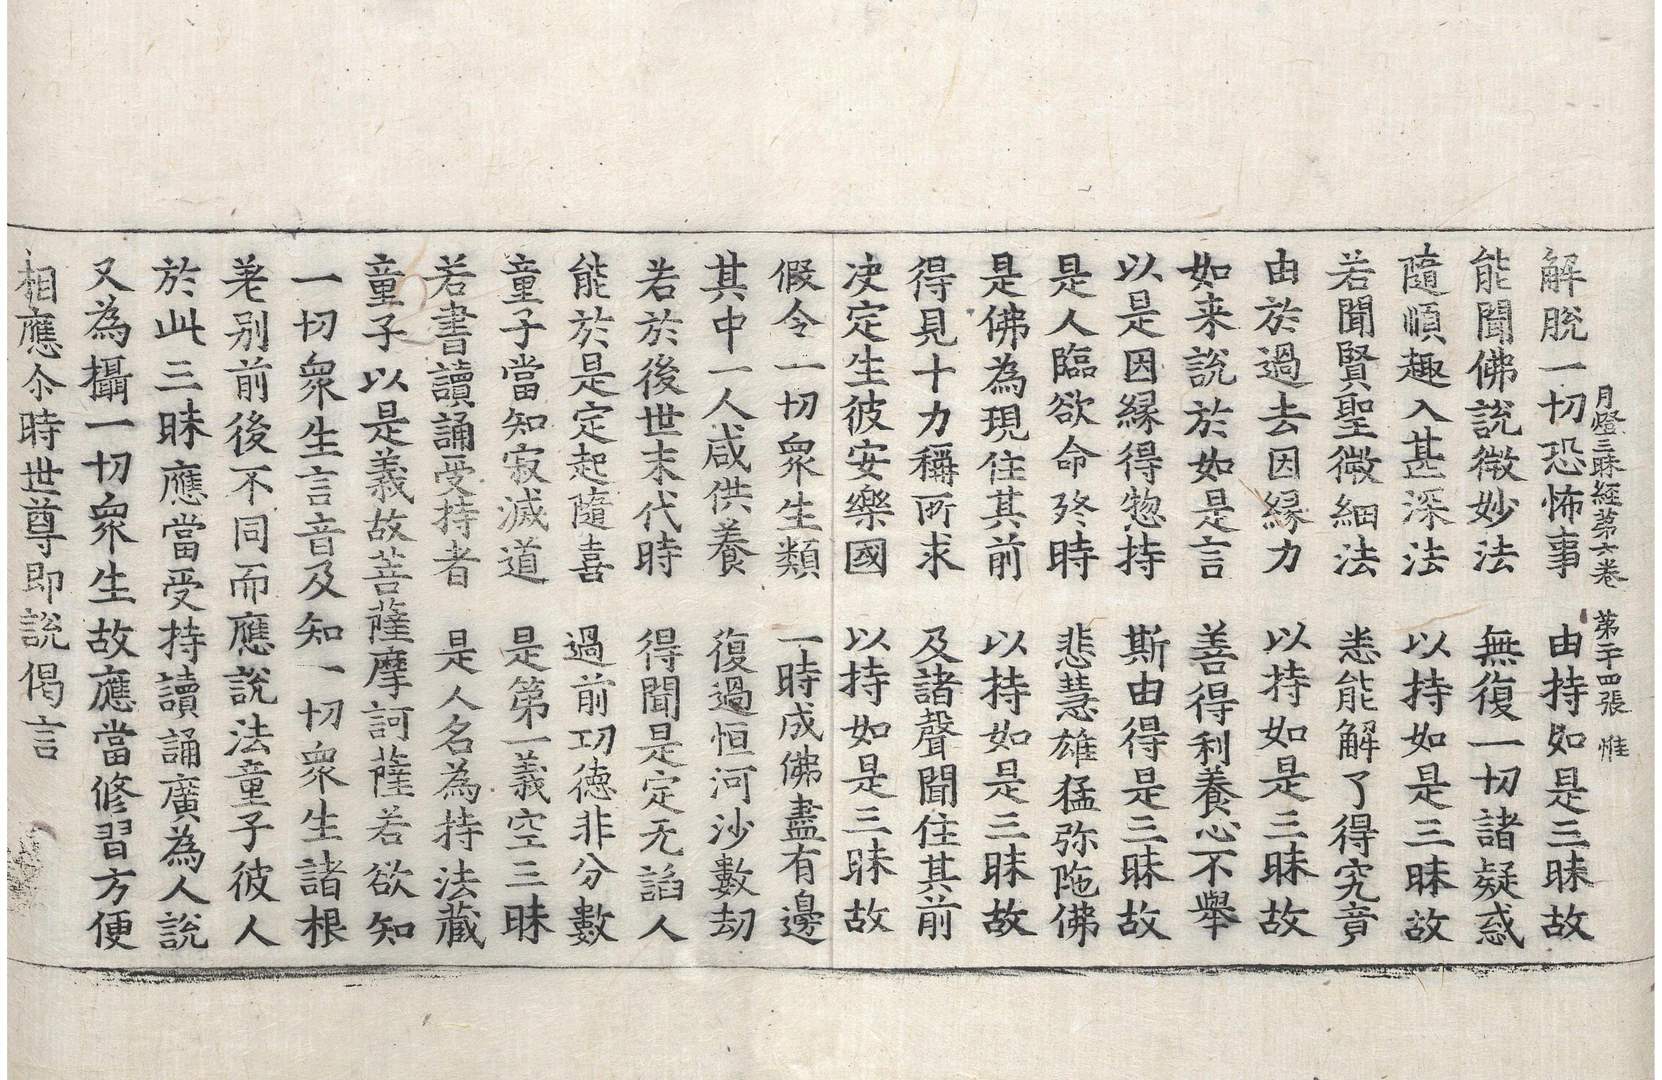 月燈三昧經第六卷　第二十四張　惟
解脫一切恐怖事　由持如是三昧故
能聞佛說微妙法　無復一切諸疑惑
隨順趣入甚深法　以持如是三昧故
若聞賢聖微細法　悉能解了得究竟
由於過去因緣力　以持如是三昧故
如来說於如是言　善得利養心不舉
以是因緣得惣持　斯由得是三昧故
是人臨欲命終時　悲慧雄猛弥陁佛
是佛為現住其前　以持如是三昧故
得見十力稱所求　及諸聲聞住其前
决定生彼安樂國　以持如是三昧故
假令一切衆生類　一時成佛盡有邊
其中一人咸供養　復過恒河沙數劫
若於後世末代時　得聞是定无諂人
能於是定起隨喜　過前功德非分數
童子當知寂滅道　是第一義空三昧
若書讀誦受持者　是人名為持法藏
童子以是義故菩薩摩訶薩若欲知
一切衆生言音及知一切衆生諸根
差别前後不同而應說法童子彼人
於此三昧應當受持讀誦廣為人說
又為攝一切衆生故應當修習方便
相應尒時世尊即說偈言